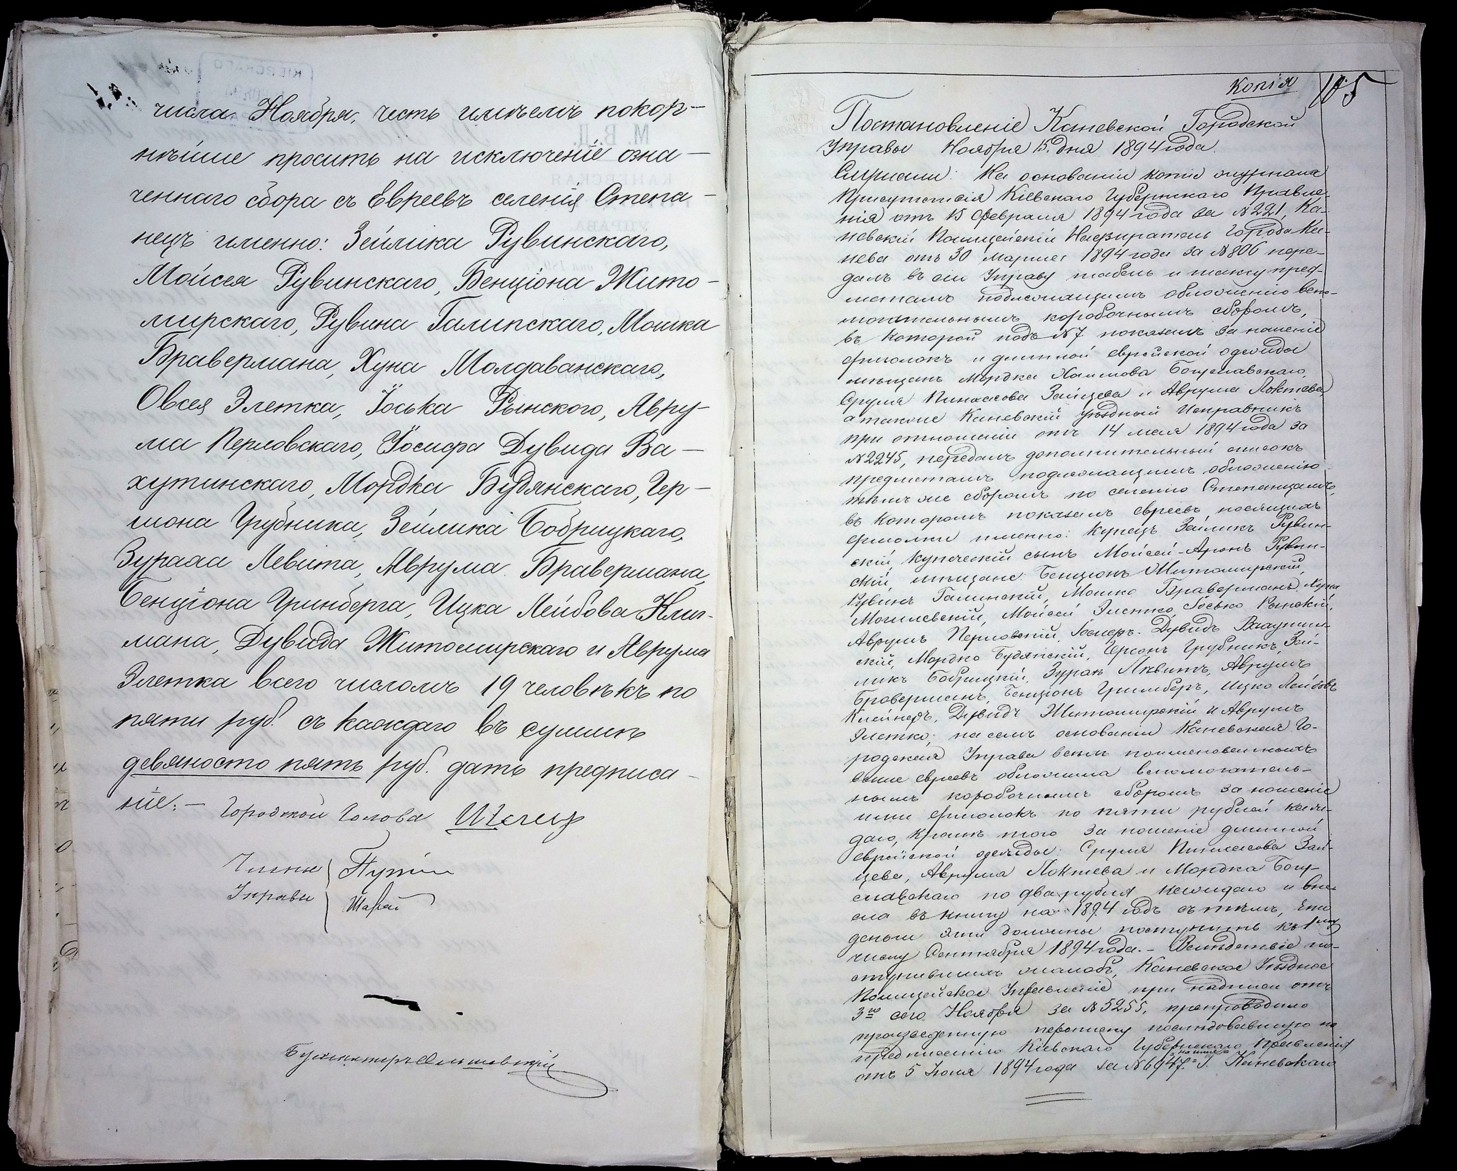 числа Ноября, честь имѣемъ покор-
нѣйше просить на исключеніе озна-
ченнаго сбора съ Евреевъ селенія Степа-
нецъ именно: Зейлика Рувинскаго,
Мойсея Рувинскаго, Бенціона Жито-
мирскаго, Рувина Галинскаго, Мошка
Бравермана, Хуна Молдаванскаго,
Овсея Элетка, Іоська Рынского, Авру-
ма Перловскаго, Іосифа Дувида Ва-
хутинскаго, Мордка Будянскаго, Гер-
шона Грубника, Зейлика Бобрицкаго,
Левита, Аврума Бравермана,
Бенціона Гринберга, Ицка Лейбова Клей-
мана, Дувида Житомирскаго и Аврума
Элетка всего числомъ 19 человѣкъ по
пяти руб. съ каждаго въ суммѣ
девяносто пять руб. дать предписа-
ніе.-
Городской Голова
Члены
Управы
Бухгалтеръ
Копія
105
Постановленіе Каневской Городской
Управы Ноября 15 дня 1894 года.
Слушали: На основаніи копіи журнала
Присутствія Кіевскаго Губернскаго Правле-
нія отъ 15 Февраля 1894 года за №221, Ка-
невскій Полицейскій Надзиратель города Ка-
нева отъ 30 Марта 1894 года за №806 пере-
далъ въ сію Управу табель и такку пред-
метамъ подлежащимъ обложенію вспо-
могательнымъ коробочнымъ сборомъ,
въ которой подъ №7 показалъ за ношеніе
ермолокъ и длинной еврейской одежды
мѣщанъ Мордка Хаимова Богуславскаго,
Сруля Пинхасова Зайцева и Аврума Локтева,
а также Каневскій уѣздный Исправникъ
при отношеніи отъ 14 мая 1894 года за
№2245, передалъ дополнительный списокъ
предметамъ подлежащимъ обложенію
тѣмъ же сборомъ по селенію Степанцамъ,
въ которомъ показалъ евреевъ носящихъ
ермолки именно: Купецъ Зейликъ Рувин-
скій, купеческій сынъ Мойсей-Аронъ Рувин-
скій, мѣщане Бенціонъ Житомирскій,
Рувинъ Галинскій, Мошко Браверманъ,
Мойсей Элетко, Іосько Рынскій,
Аврумъ Перловскій, Іосифъ-Дувидъ Вахутин-
скій, Мордко Будянскій, Гершонъ Грубникъ, Зей-
ликъ Бобрицкій, Левитъ, Аврумъ
Браверманъ, Бенціонъ Гринбергъ, Ицко Лейбовъ
Дувидъ Житомирскій и Аврумъ
Элетко; на семъ основаніи Каневская Го-
родская Управа всѣхъ поименованныхъ
выше евреевъ обложила вспомогатель-
нымъ коробочнымъ сборомъ за ношеніе
ими ермолокъ по пяти рублей каж-
даго, кромѣ того за ношеніе длинной
еврейской одежды: Сруля Пинхасова Зай-
цева, Аврума Локтева и Мордка Богу-
славскаго по два рубля каждаго и вне-
сла въ книгу на 1894 годъ съ тѣмъ, что
деньги эти должны поступить къ 1му
числу Сентября 1894 года.- Вслѣдствіе по-
ступившихъ жалобъ, Каневское Уѣздное
Полицейское Управленіе при надписи отъ
3го сего Ноября за №5255, препроводило
произведенную переписку послѣдовавшую по
предписанію Кіевскаго Губернскаго Правленія
отъ 5 Іюля 1894 года за Каневскаго